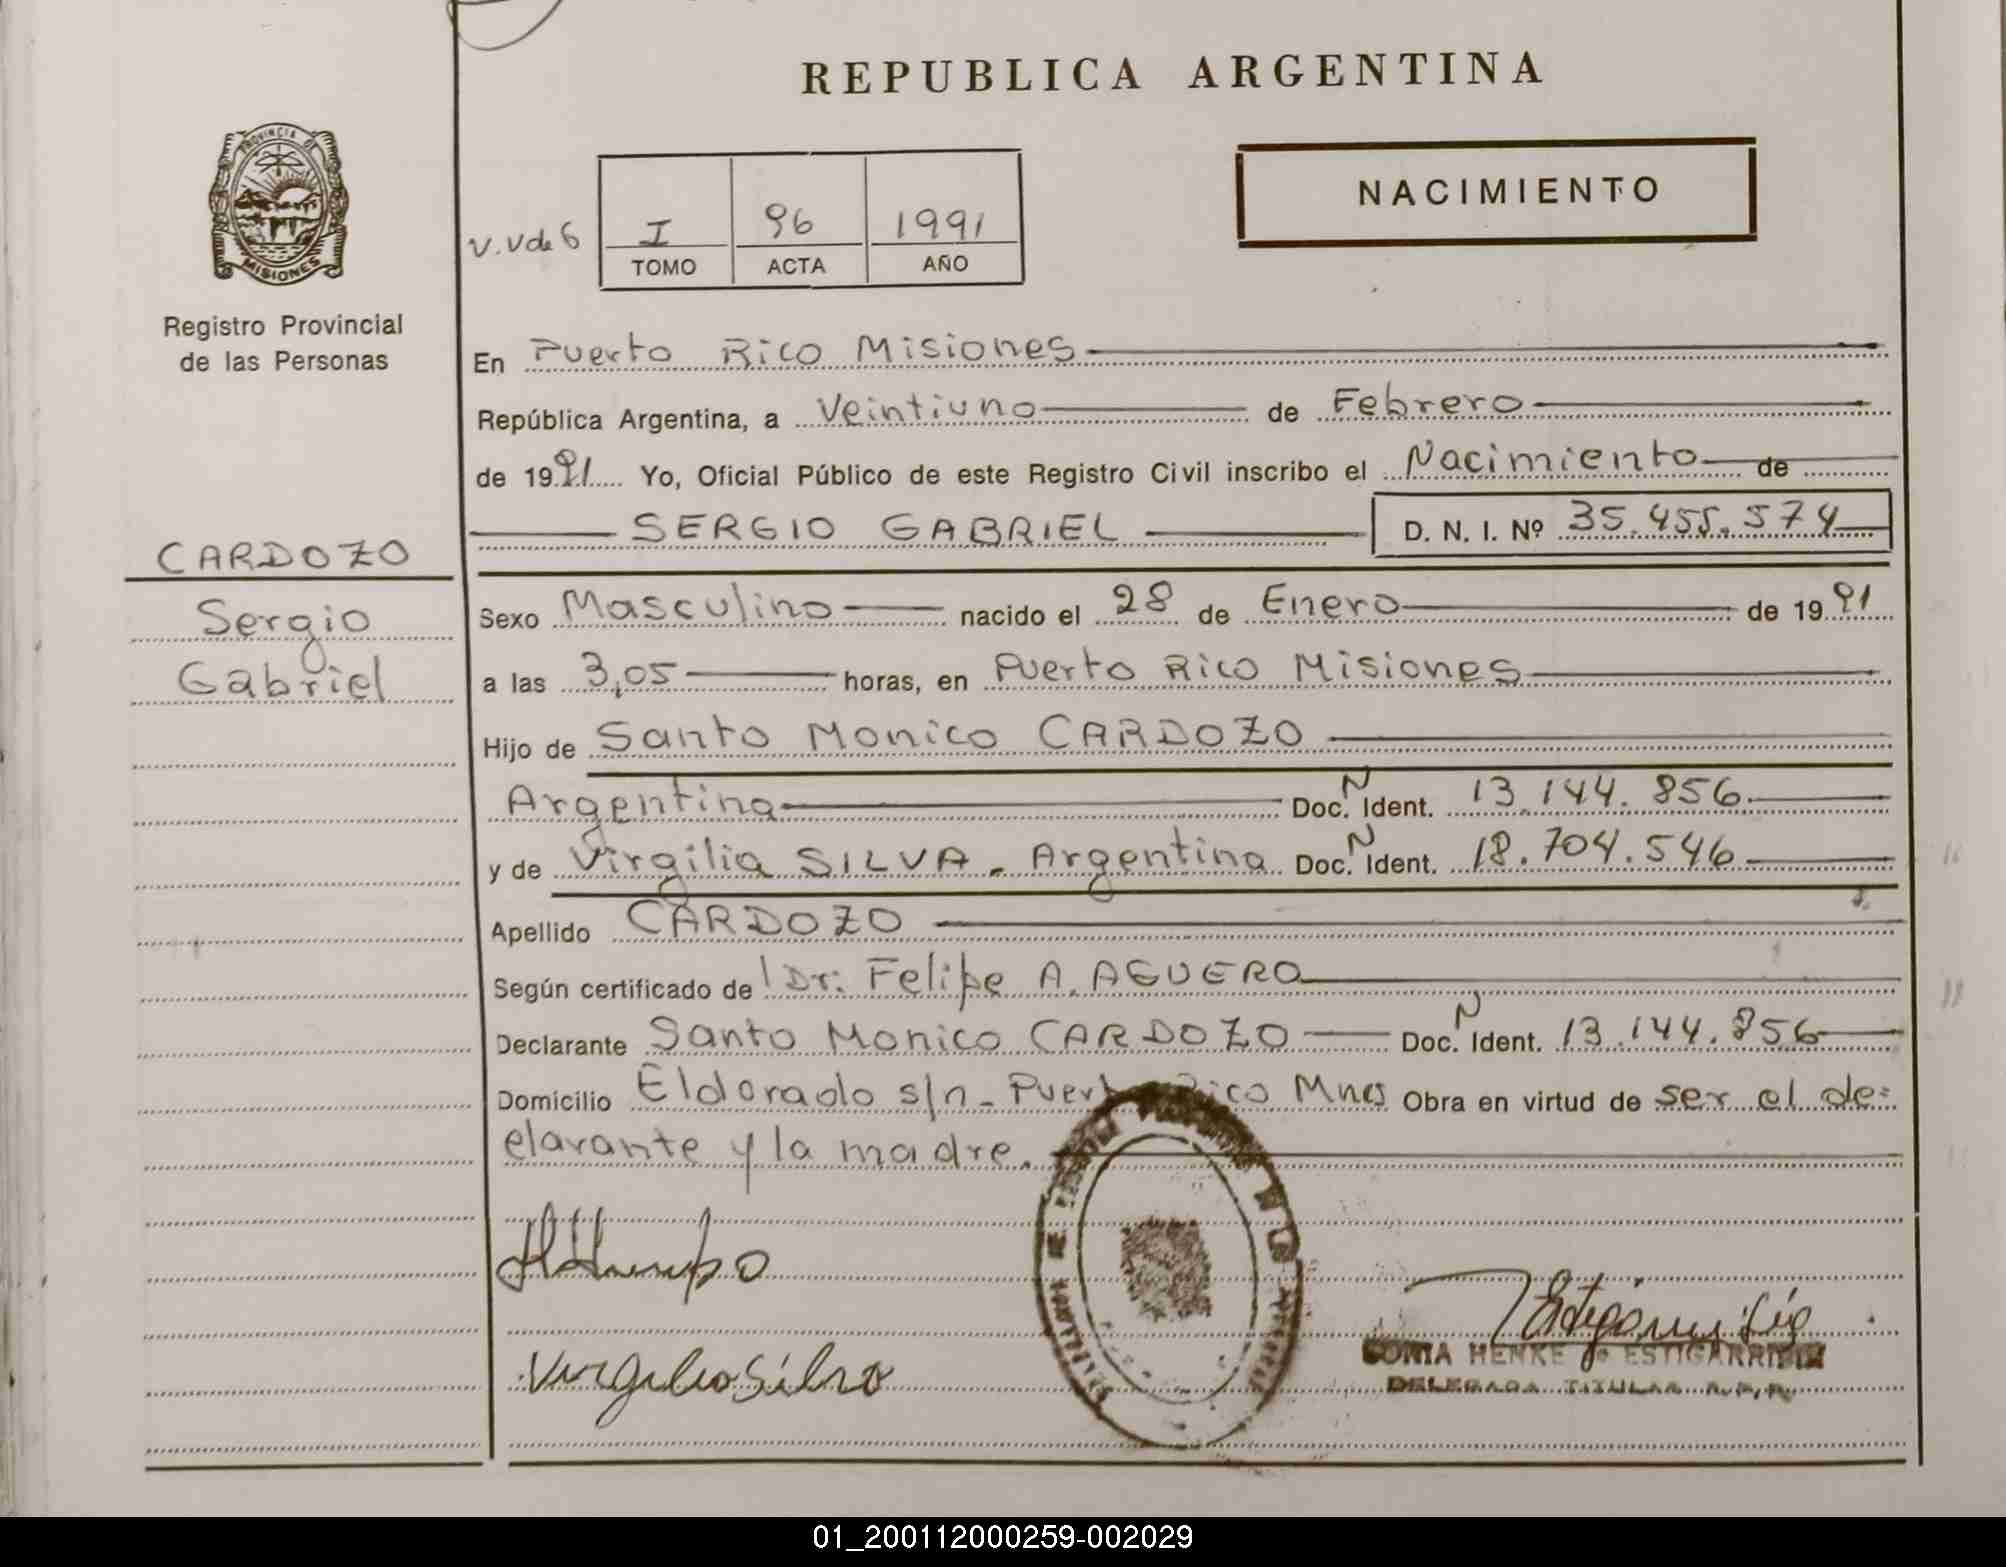 REPUBLICA ARGENTINA
PROVINCIA DE
MISIONES
Registro Provincial
de las Personas
NACIMIENTO
V. Vde 6
I 96 1991
TOMO ACTA AÑO
En Puerto Rico Misiones
República Argentina, a Veintiuno de Febrero
de 1991 Yo, Oficial Público de este Registro Civil inscribo el Nacimiento de
SERGIO GABRIEL D. N. I. Nº 35.455.574
CARDOZO
Sergio
Gabriel
Sexo Masculino nacido el 28 de Enero de 1991
a las 3,05 horas, en Puerto Rico Misiones
Hijo de Santo Monico CARDOZO
Argentina Doc. N Ident. 13.144.856
y de Virgilia SILVA - Argentina Doc. N Ident. 18.704.546
Apellido CARDOZO
Según certificado de Dr: Felipe A. AGUERO
Declarante Santo Monico CARDOZO Doc. N Ident. 13.144.856
Domicilio Eldorado s/n - Puerto Rico Mnes Obra en virtud de ser el de=
clarante y la madre.
Virgilia Silva
SONIA HENKE de ESTIGARRIBIA
DELEGADA TITULAR R.P.P.
01_200112000259-002029